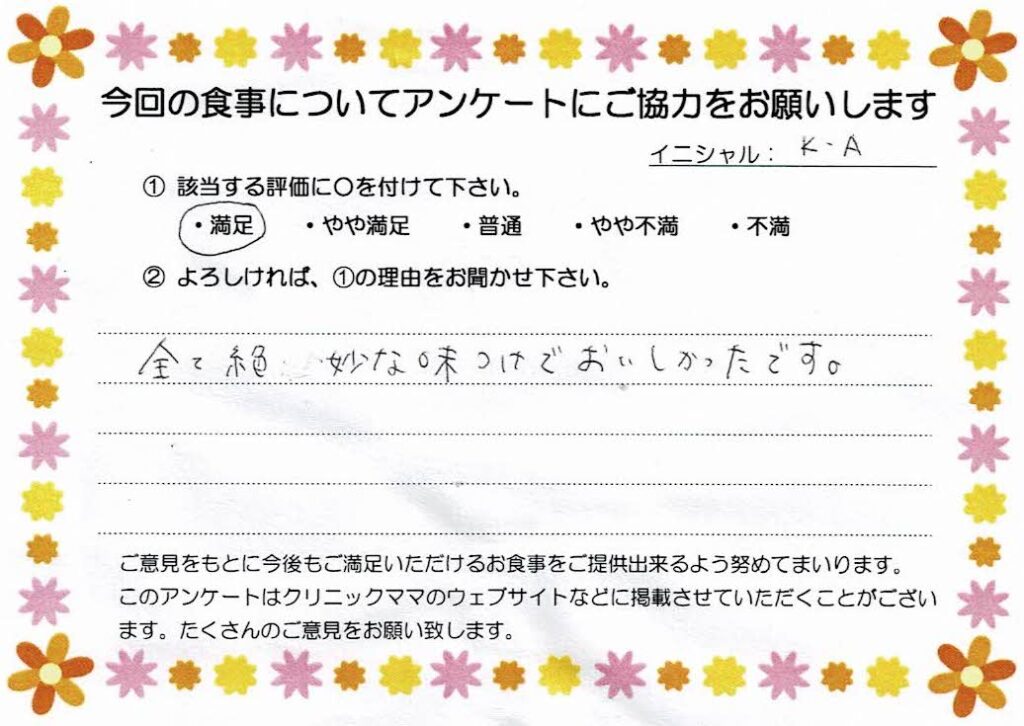 今回の食事についてアンケートにご協力をお願いします
イニシャル： K・A
① 該当する評価に〇を付けて下さい。
・満足 ・やや満足 ・普通 ・やや不満 ・不満
② よろしければ、①の理由をお聞かせ下さい。
全て絶妙な味つけでおいしかったです。
ご意見をもとに今後もご満足いただけるお食事をご提供出来るよう努めてまいります。
このアンケートはクリニックママのウェブサイトなどに掲載させていただくことがござい
ます。たくさんのご意見をお願い致します。